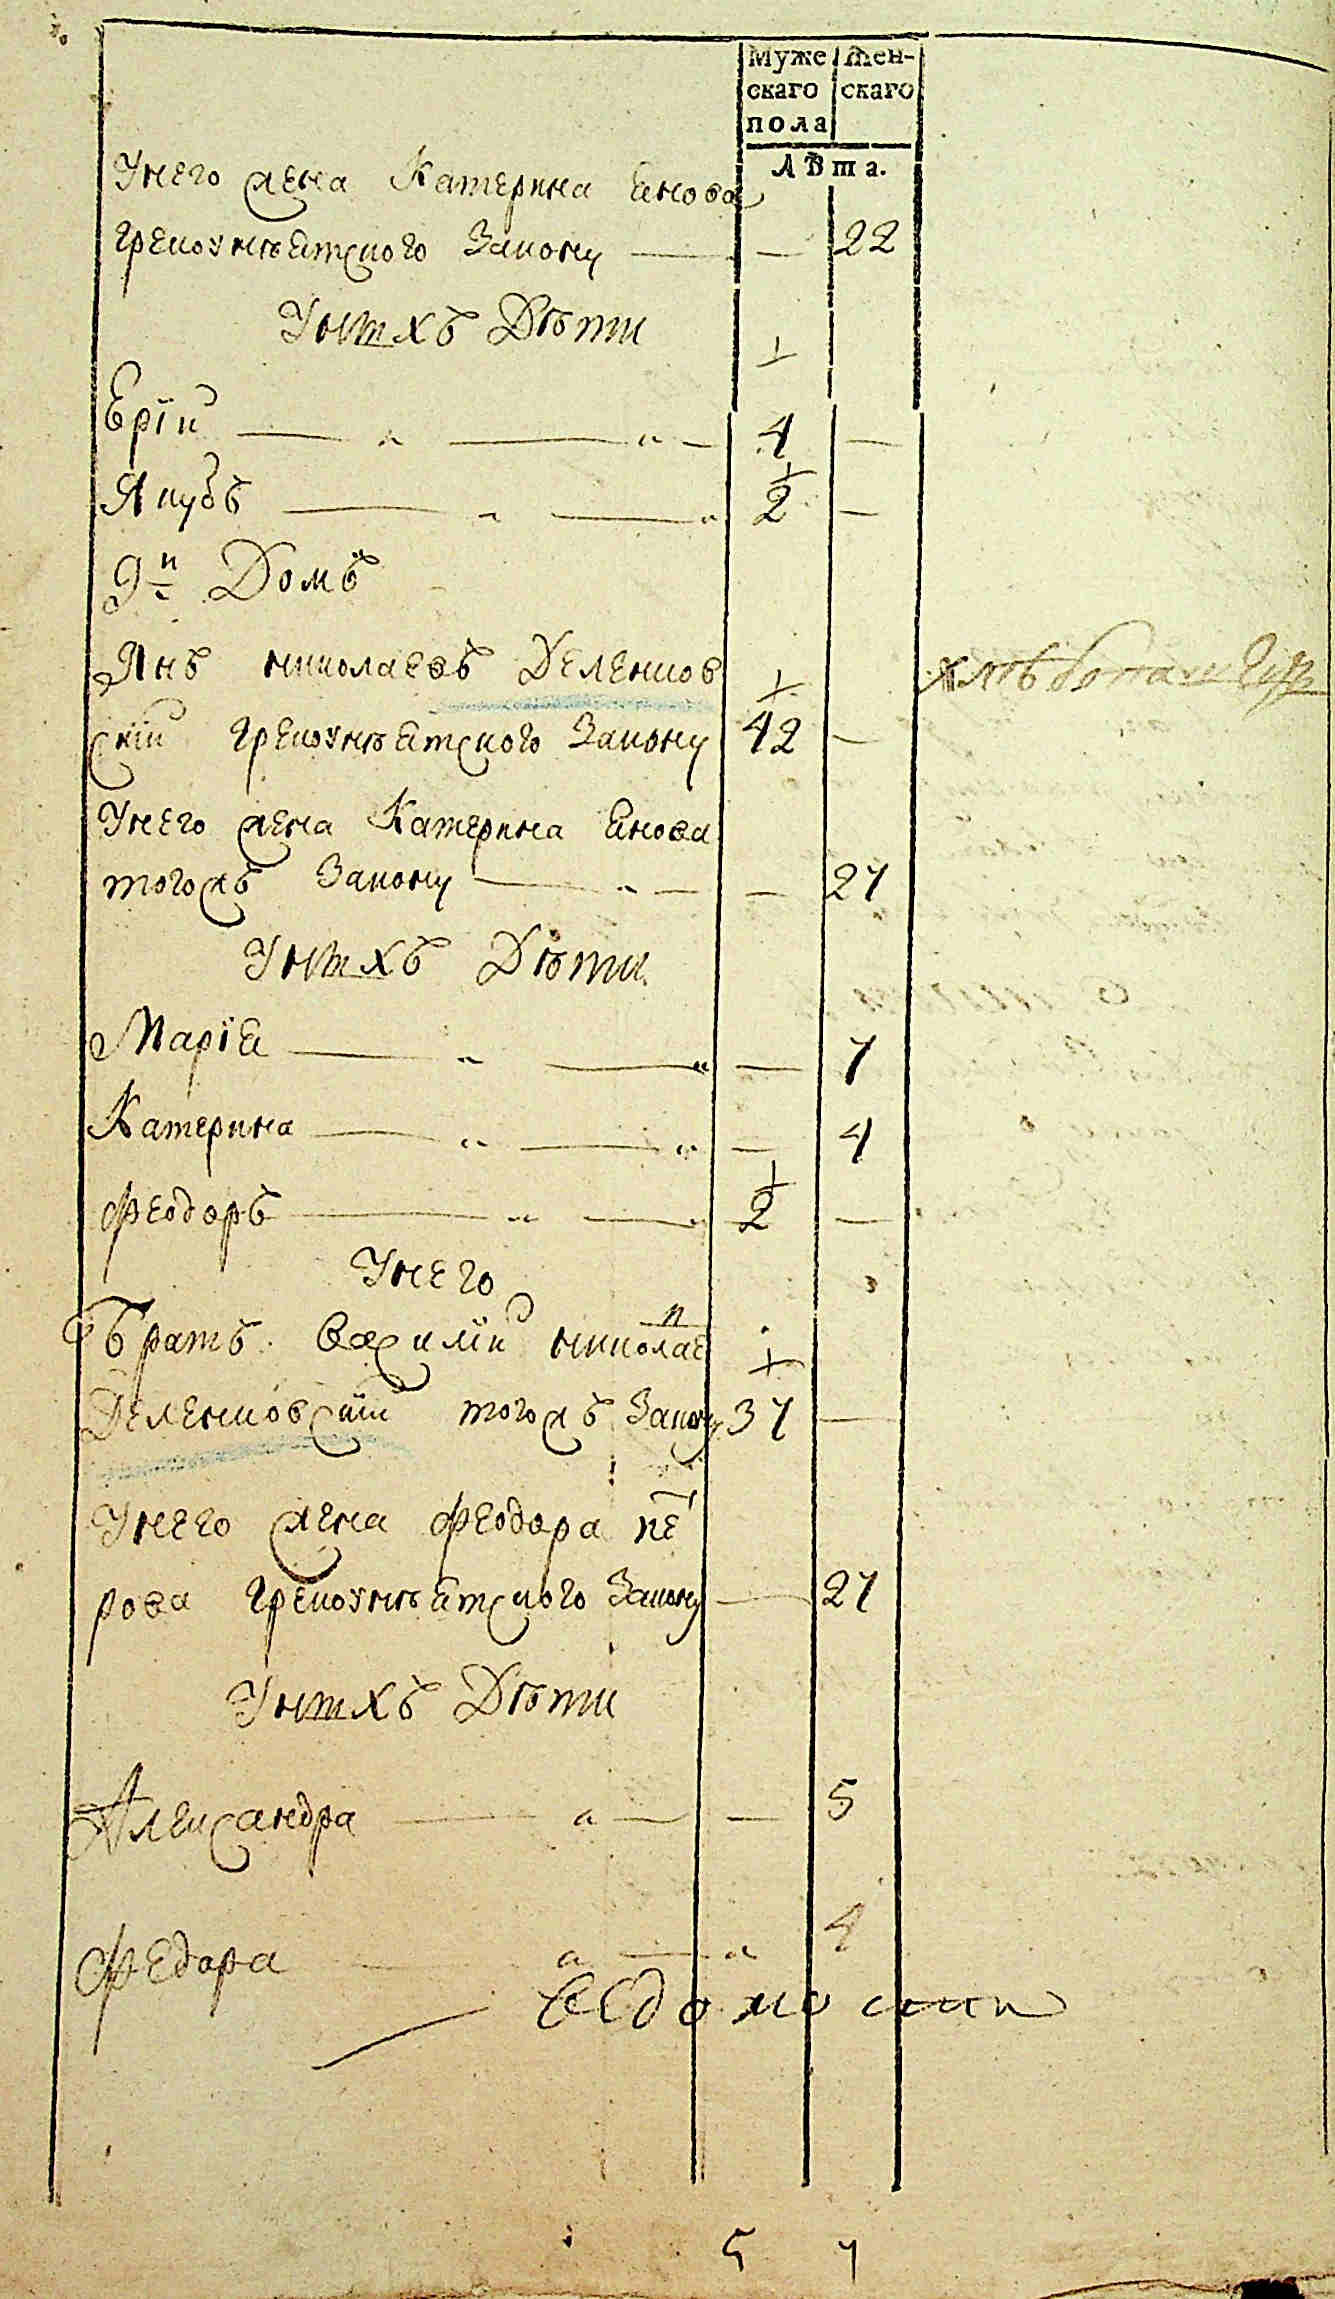 Муже Жен-
скаго скаго
пола
Лѣта.
Унего жена Катерина Янова
грекоунѣятского Закону — — 22
Унихъ Дѣти
Ерїй — " — " — 4 —
Якубъ — " — " 2 —
9й Домъ
Янъ николаевъ Деленков
скїй грекоунѣятского Закону 42 —
Унего жена Катерина Янова
тогожъ Закону — " — — 27
Унихъ Дѣти
Марїя — " — " — 7
Катерина — " — " — 4
Феодоръ — " — " 2 —
Унего
Братъ Василїй николае
Деленковскїй тогожъ Закону 37 —
Унего жена Феодора пе
рова грекоунѣятского Закону — 27
Унихъ Дѣти
Александра — " — — 5
Федора — " — " 4
ведомости
5 7